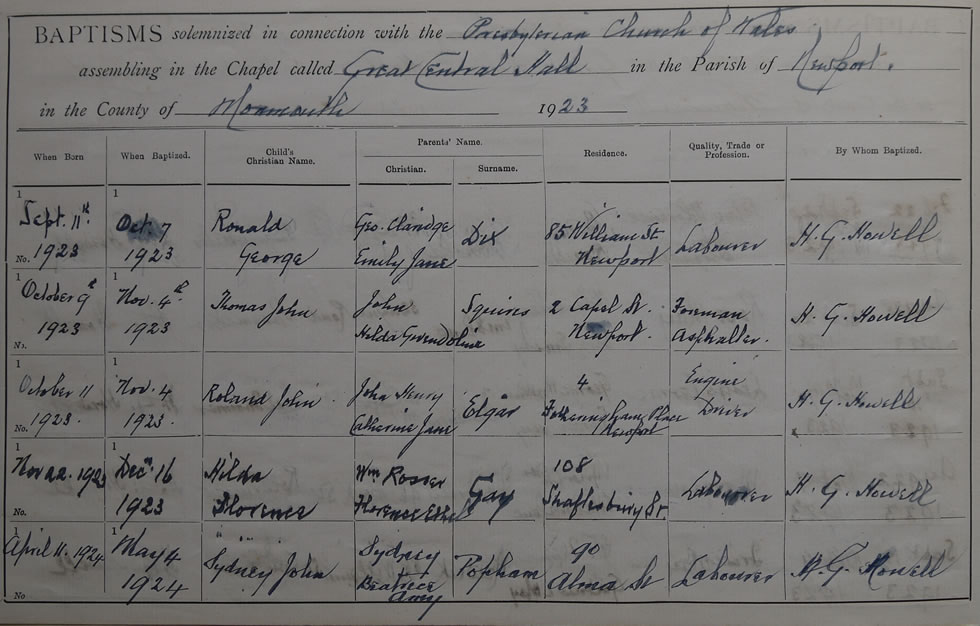 BAPTISMS solemnized in connection with the Presbyterian Church of Wales
assembling in the Chapel called Great Central Hall in the Parish of Newport.
in the County of Monmouth 1923
When Born When Baptized. Child's Christian Name. Parents' Name. Christian. Surname. Residence. Quality, Trade or Profession. By Whom Baptized.
1 1
Sept. 11th Oct. 7 Ronald Geo. Claridge Dix 85 William St Labourer H. G. Howell
No. 1923 1923 George Emily Jane Newport
1 1
October 9th Nov. 4th Thomas John John Squires 2 Capel St. Foreman H. G. Howell
No. 1923 1923 Hilda Gwendoline Newport. Asphalter.
1 1
October 11 Nov. 4 Roland John John Henry Elgar 4 Engine H. G. Howell
No. 1923. 1923. Catherine Jane Place Newport Driver
1 1
Nov 22. 1923 Dec. 16 Hilda Wm Rosser Gay 108 Labourer H. G. Howell
No. 1923 Florence Florence Ethel Shaftesbury St.
1
April 11. 1924 May 4 Sydney John Sydney Popham 90 Labourer H. G. Howell
No 1924 Beatrice Amy Alma St